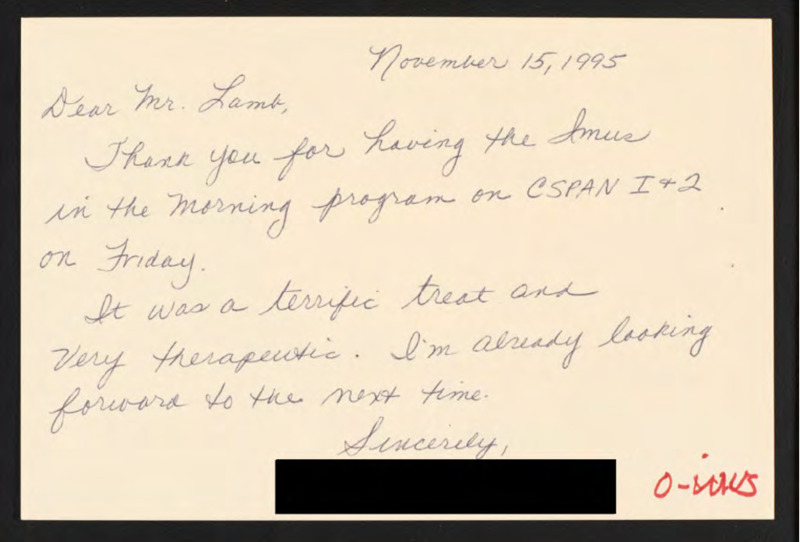 November 15, 1995
Dear Mr. Lamb,
Thank you for having the Imus
in the Morning program on CSPAN I + 2
on Friday.
It was a terrific treat and
very therapeutic. I'm already looking
forward to the next time.
Sincerely,
O-imus